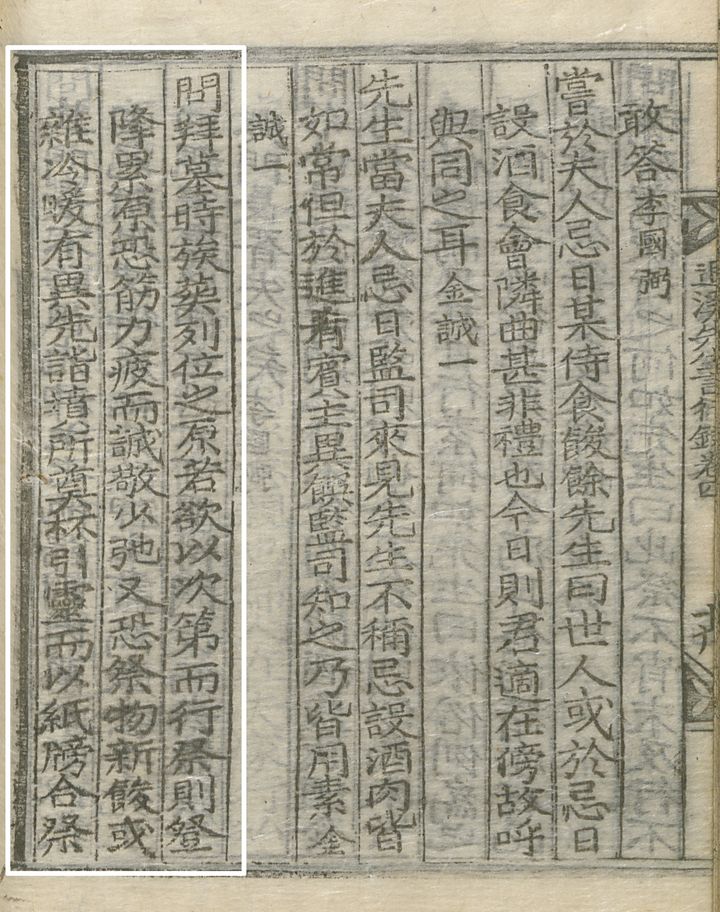 敢答李國弼
嘗於夫人忌日某侍食餕餘先生曰世人或於忌日
設酒食會隣曲甚非禮也今日則君適在傍故呼
與同之耳金誠一
先生當夫人忌日監司來見先生不稱忌設酒肉皆
如常但於進肴賓主異饌監司知之乃皆用素金
誠一
問拜墓時族葬列位之原若欲以次第而行祭則登
降累原恐筋力疲而誠敬少弛又恐祭物新餕或
雜冷暖有異先詣墳所奠杯引靈而以紙牓合祭
退溪先生言行錄卷四